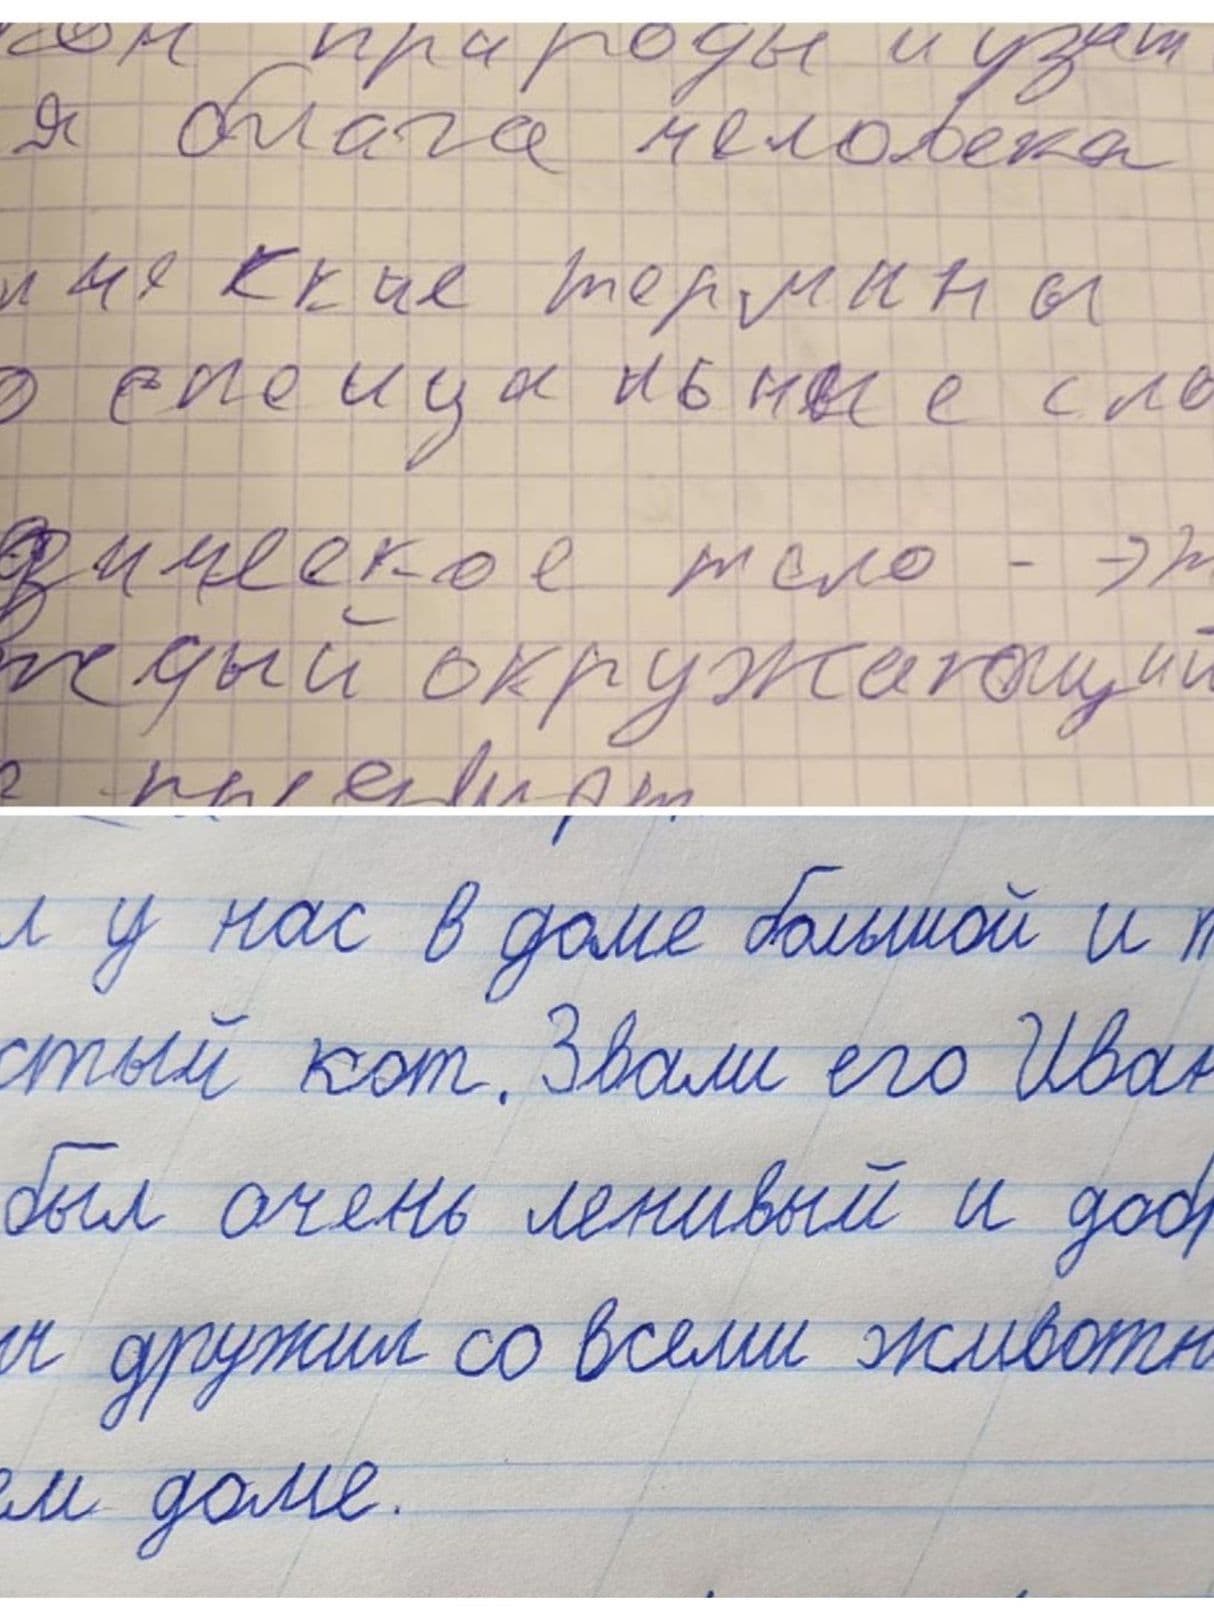 кон природы и
я блага человека
термины
о специальные сло
зическое тело - эт
ждый окружающий
предмет
л у нас в доме большой и п
стый кот. Звали его Иван
был очень ленивый и добр
ыч дружил со всеми животн
ем доме.